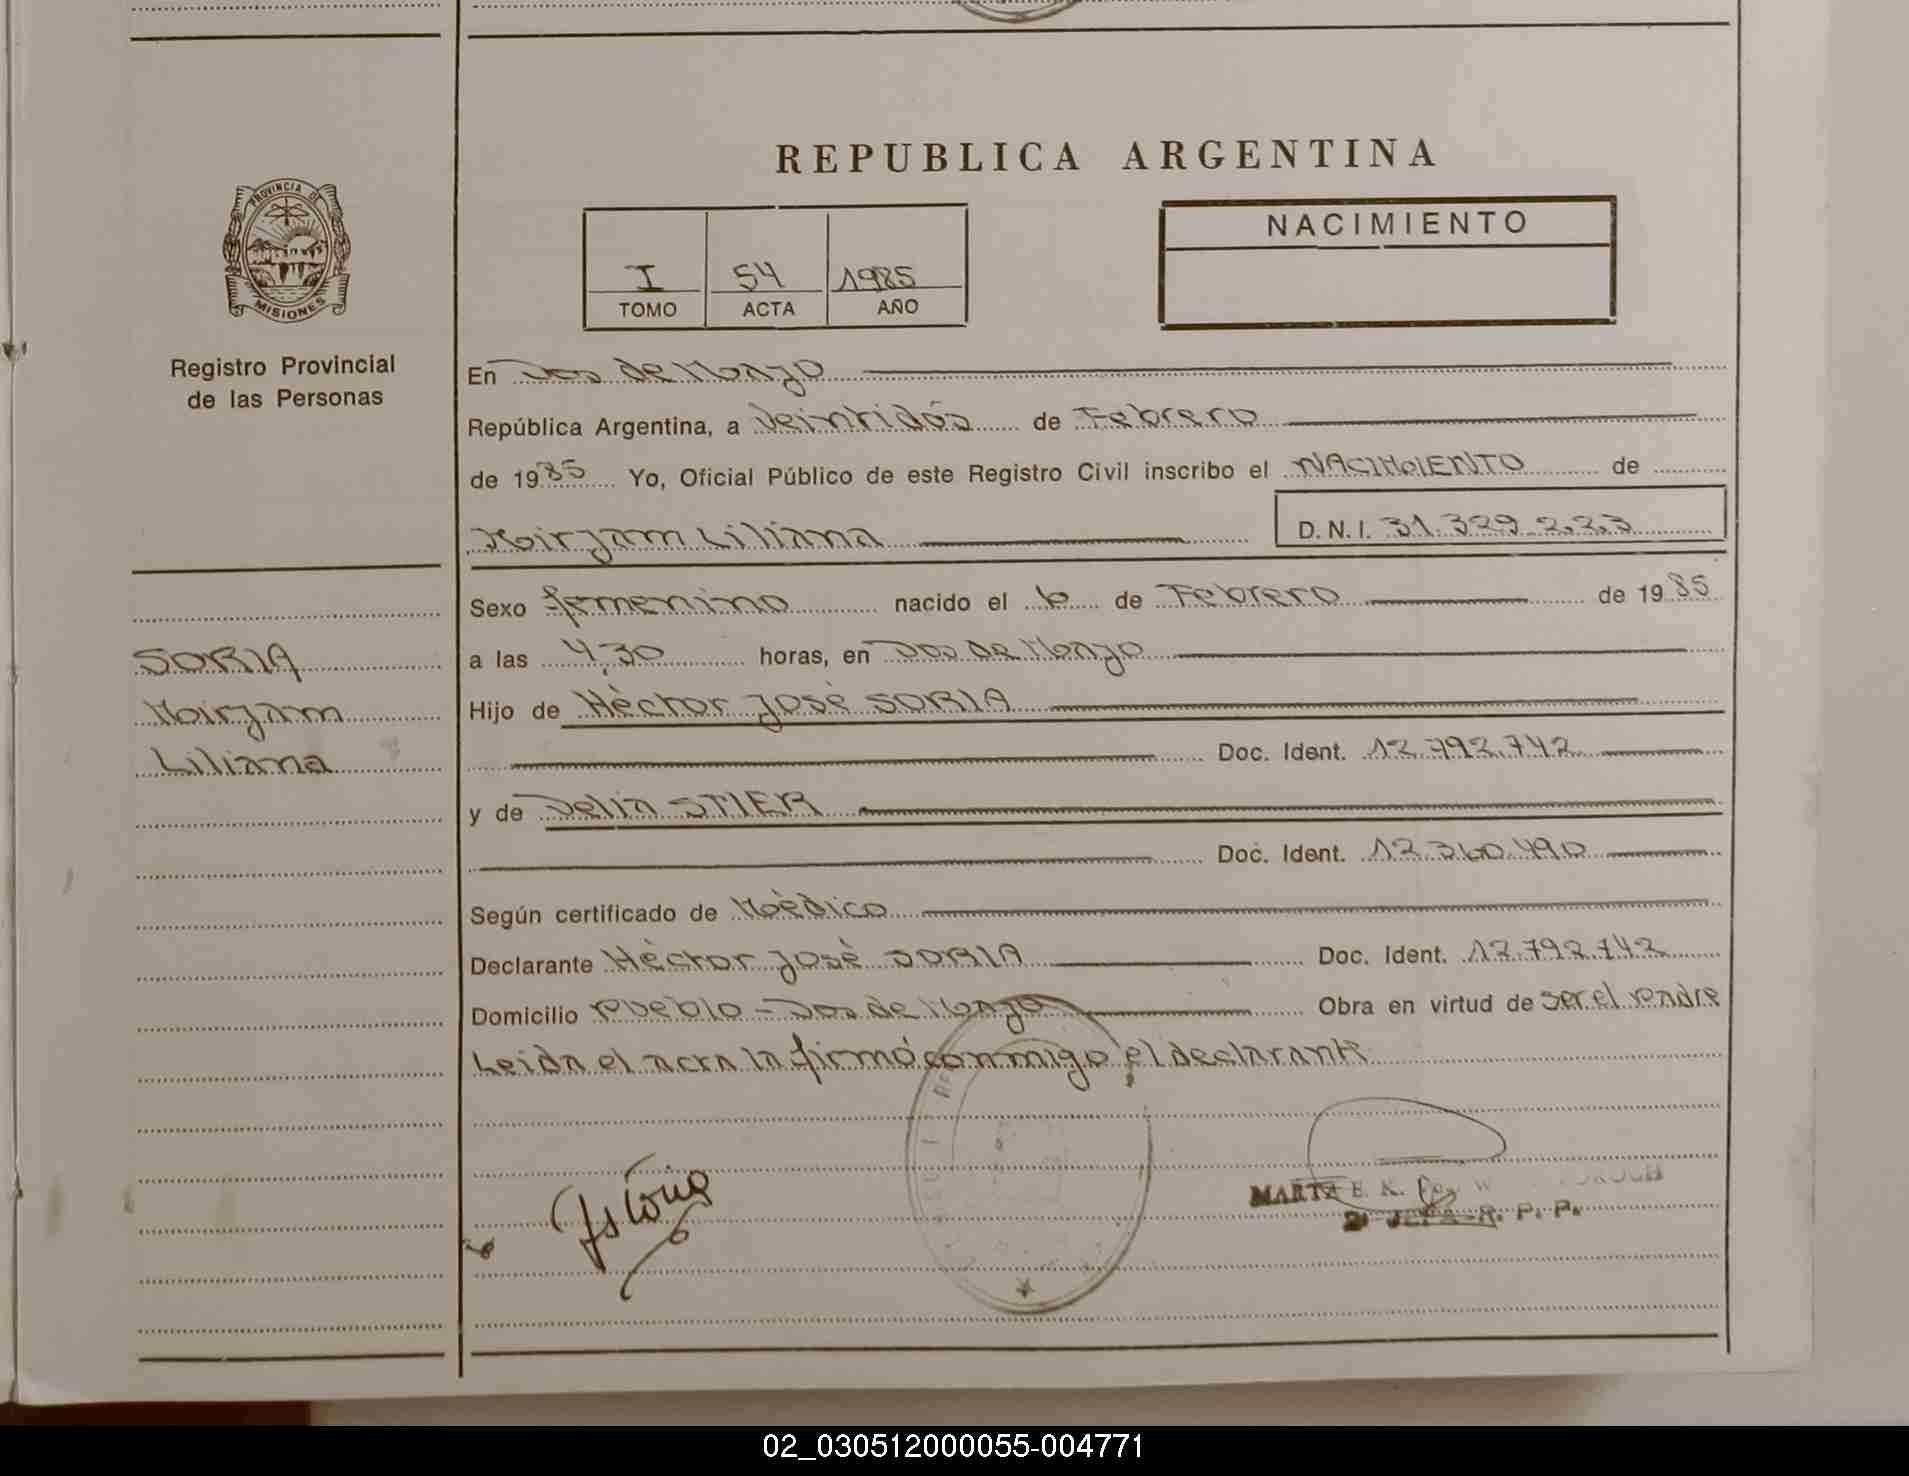 REPUBLICA ARGENTINA
PROVINCIA DE
MISIONES
Registro Provincial
de las Personas
NACIMIENTO
I 54 1985
TOMO ACTA AÑO
En Dos de Mayo
República Argentina, a Veintidós de Febrero
de 1985 Yo, Oficial Público de este Registro Civil inscribo el NACIMIENTO de
Miryam Liliana D.N.I. 31.329.223
Sexo femenino nacido el 6 de Febrero de 1985
a las 4,30 horas, en Dos de Mayo
Hijo de Héctor José SORIA
Doc. Ident. 12.792.742
y de Delia STIER
Doc. Ident. 12.360.490
Según certificado de Médico
Declarante Héctor José SORIA Doc. Ident. 12.792.742
Domicilio Pueblo - Dos de Mayo Obra en virtud de ser el Padre
Leida el acta la firmó conmigo el declarante
SORIA
Miryam
Liliana
MARTA E. K.
JEFA R. P. P.
02_030512000055-004771